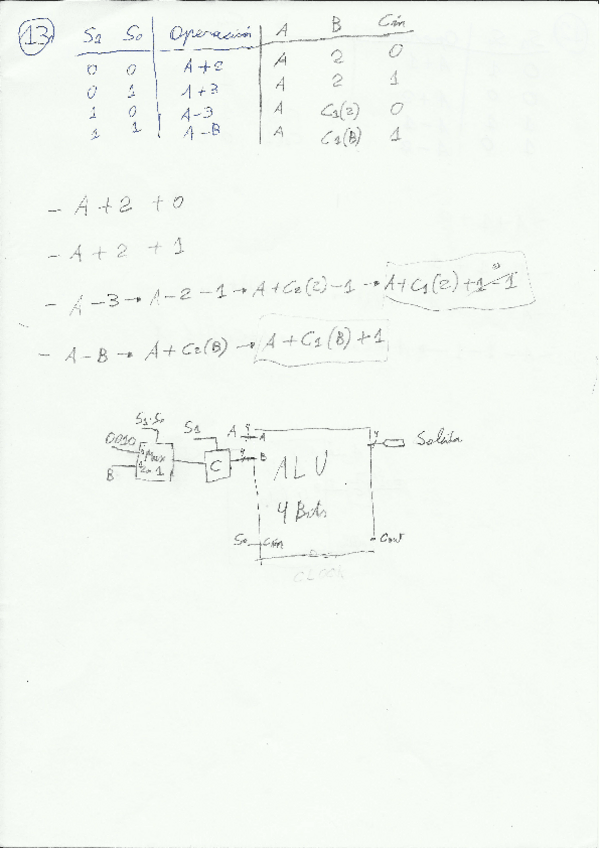 13 S1 S0 Operación A B Cin
0 0 A+2 A 2 0
0 1 A+3 A 2 1
1 0 A-3 A C1(2) 0
1 1 A-B A C1(B) 1
- A+2 +0
- A+2 +1
- A-3 → A-2-1 → A+C2(2)-1 → A+C1(2)+1-1 0
- A-B → A+C2(B) → A+C1(B)+1
S1·S0 S1 A 4 A 4 Salida
0010 Mux 2a1 C 4 B ALU
B
4 Bits
S0 Cin Cout
CLOCK